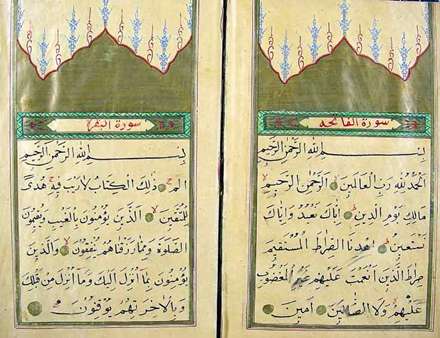 سورة الفاتحه
بسم الله الرحمن الرحيم
الحمد لله رب العالمين الرحمن الرحيم
مالك يوم الدين اياك نعبد واياك
نستعين اهدنا الصراط المستقيم
صراط الذين انعمت عليهم غير المغضوب
عليهم ولا الضالين امين
سورة البقرة
بسم الله الرحمن الرحيم
الم ذلك الكتاب لا ريب فيه هدى
للمتقين الذين يؤمنون بالغيب ويقيمون
الصلوة ومما رزقناهم ينفقون والذين
يؤمنون بما انزل اليك وما انزل من قبلك
وبالاخرة هم يوقنون